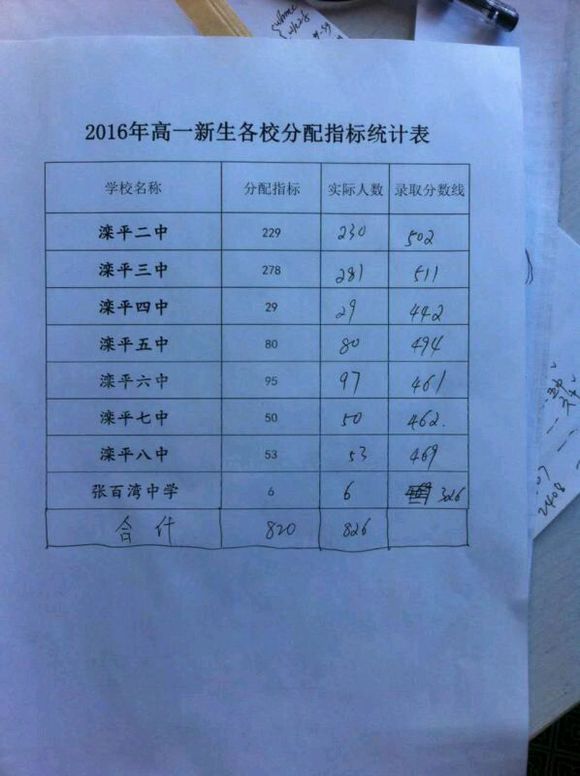 2016年高一新生各校分配指标统计表
学校名称 分配指标 实际人数 录取分数线
滦平二中 229 230 502
滦平三中 278 281 511
滦平四中 29 29 442
滦平五中 80 80 494
滦平六中 95 97 461
滦平七中 50 50 462.
滦平八中 53 53 469
张百湾中学 6 6 326
合计 820 826
2408